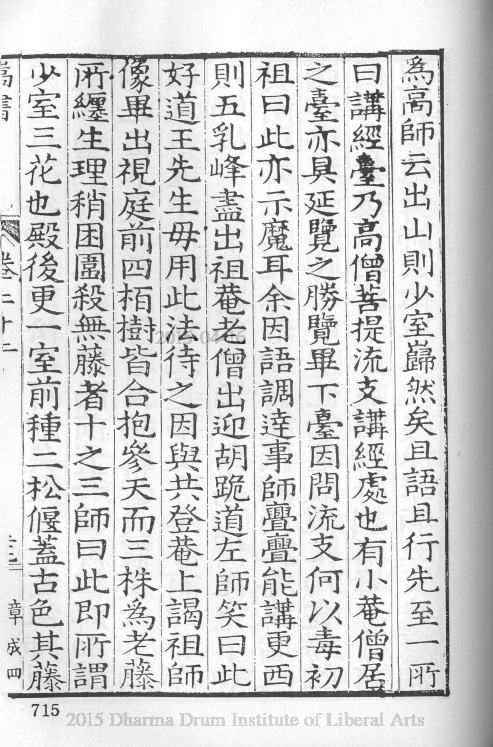 為高師云出山則少室巋然矣且語且行先至一所
曰講經臺乃高僧菩提流支講經處也有小菴僧居
之臺亦具延覽之勝覽畢下臺因問流支何以毒初
祖曰此亦示魔耳余因語調達事師亹亹能講更西
則五乳峰盡出祖菴老僧出迎胡跪道左師笑曰此
好道王先生毋用此法待之因與共登菴上謁祖師
像畢出視庭前四栢樹皆合抱參天而三株為老藤
所纏生理稍困圍殺無藤者十之三師曰此即所謂
少室三花也殿後更一室前種二松偃蓋古色其藤
卷二十二
章成四
715
2015 Dharma Drum Institute of Liberal Arts